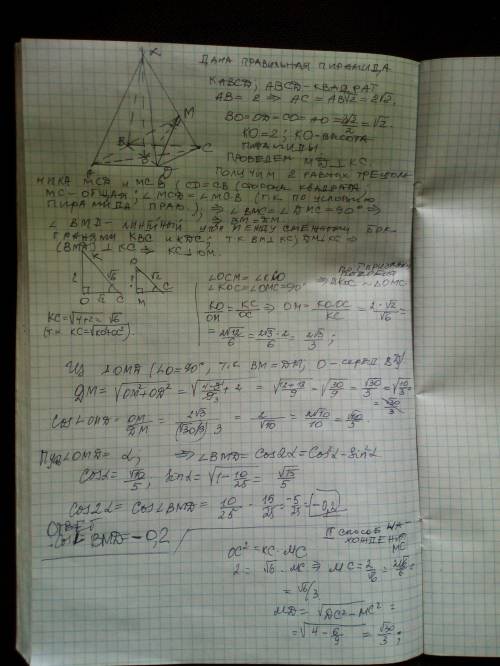 ДАНА ПРАВИЛЬНАЯ ПИРАМИДА
KABCD; ABCD-КВАДРАТ
AB = 2 ⇒ AC = AB√2 = 2√2;
BO=OD=CO=AO=2√2/2=√2.
KO=2; KO-ВЫСОТА
ПИРАМИДЫ
ПРОВЕДЕМ ⊥ KC.
ПОЛУЧИМ 2 РАВНЫХ ТРЕУГОЛЬ
НИКА MCD и MCB CD=CB (СТОРОНА КВАДРАТА,
MC-ОБЩАЯ; ∠MCD=∠MCB (Т.К. ПО УСЛОВИЮ
ПИРАМИДА ПРАВ.), ⇒ ∠BMC=∠DMC=90° ⇒
⇒ BM=DM
∠ BMD- ЛИНЕЙНЫЙ УГОЛ МЕЖДУ СМЕЖНЫМИ БОК.
ГРАНЯМИ KBC и KDC; Т.К. BM⊥KC, DM⊥KC ⇒
(BMD) ⊥ KC ⇒ KC⊥OM.
K
2
√6
O √2 C
O
√2
M C
KC=√4+2=√6
(т.к. KC=√KO²+OC²)
∠KOC=∠OMC=90°
⇒ △KOC ~ △OMC
KO/OM = KC/OC ⇒ OM = KO·OC/KC = 2·√2/√6 =
= 2√12/6 = 2√3·2/6 = 2√3/3;
Из △OMD (∠O=90°, т.к. BM=DM, O-серед. BD)
DM=√OM²+OD² = √4·3/9+2 = √12+18/9 = √30/9 = √30/3 = √10/3
= √30/3
Cos∠OMD = OM/DM = 2√3/(√30/3)·3 = 2/√10 = 2√10/10 = √10/5.
Пусть ∠OMD= α, ⇒ ∠BMD= Cos2α=Cos²α-Sin²α
Cosα=√10/5, Sinα=√1-10/25=√15/5
Cos2α = Cos∠BMD= 10/25 - 15/25=-5/25=-0,2
ОТВЕТ
Cos BMD=-0,2
II СПОСОБ НА-
ХОЖДЕНИЯ
MC
OC²=KC·MC
2= √6·MC ⇒ MC=2/√6=2√6/6=
=√6/3
MD=√DC²-MC²=
=√4-6/9 = √30/3;